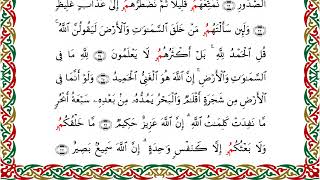 ٱلصُّدُورِ ۝٢٣ نُمَتِّعُهُمُۥ قَلِيلًا ثُمَّ نَضْطَرُّهُمُۥ إِلَىٰ عَذَابٍ غَلِيظٍ
۝٢٤ وَلَئِن سَأَلْتَهُمُۥ مَّنْ خَلَقَ ٱلسَّمَٰوَٰتِ وَٱلْأَرْضَ لَيَقُولُنَّ ٱللَّهُ ۚ
قُلِ ٱلْحَمْدُ لِلَّهِ ۚ بَلْ أَكْثَرُهُمُۥ لَا يَعْلَمُونَ ۝٢٥ لِلَّهِ مَا فِى
ٱلسَّمَٰوَٰتِ وَٱلْأَرْضِ ۚ إِنَّ ٱللَّهَ هُوَ ٱلْغَنِىُّ ٱلْحَمِيدُ ۝٢٦ وَلَوْ أَنَّمَا
فِى ٱلْأَرْضِ مِن شَجَرَةٍ أَقْلَٰمٌ وَٱلْبَحْرُ يَمُدُّهُۥ مِنۢ بَعْدِهِۦ سَبْعَةُ أَبْحُرٍ
مَّا نَفِدَتْ كَلِمَٰتُ ٱللَّهِ ۗ إِنَّ ٱللَّهَ عَزِيزٌ حَكِيمٌ ۝٢٧ مَّا خَلْقُكُمُۥ
وَلَا بَعْثُكُمُۥ إِلَّا كَنَفْسٍ وَٰحِدَةٍ ۗ إِنَّ ٱللَّهَ سَمِيعٌۢ بَصِيرٌ ۝٢٨